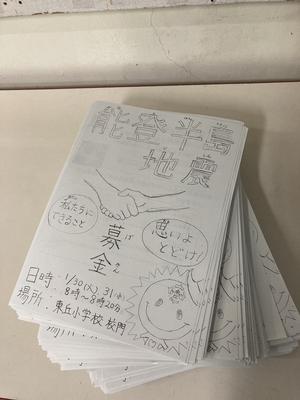 能登半島
地震
私たちに
できること
思いよ
とどけ!
募
金
ぼ
きん
日時:1/30(火) 31(水)
8時～8時20分
場所:東丘小学校 校門